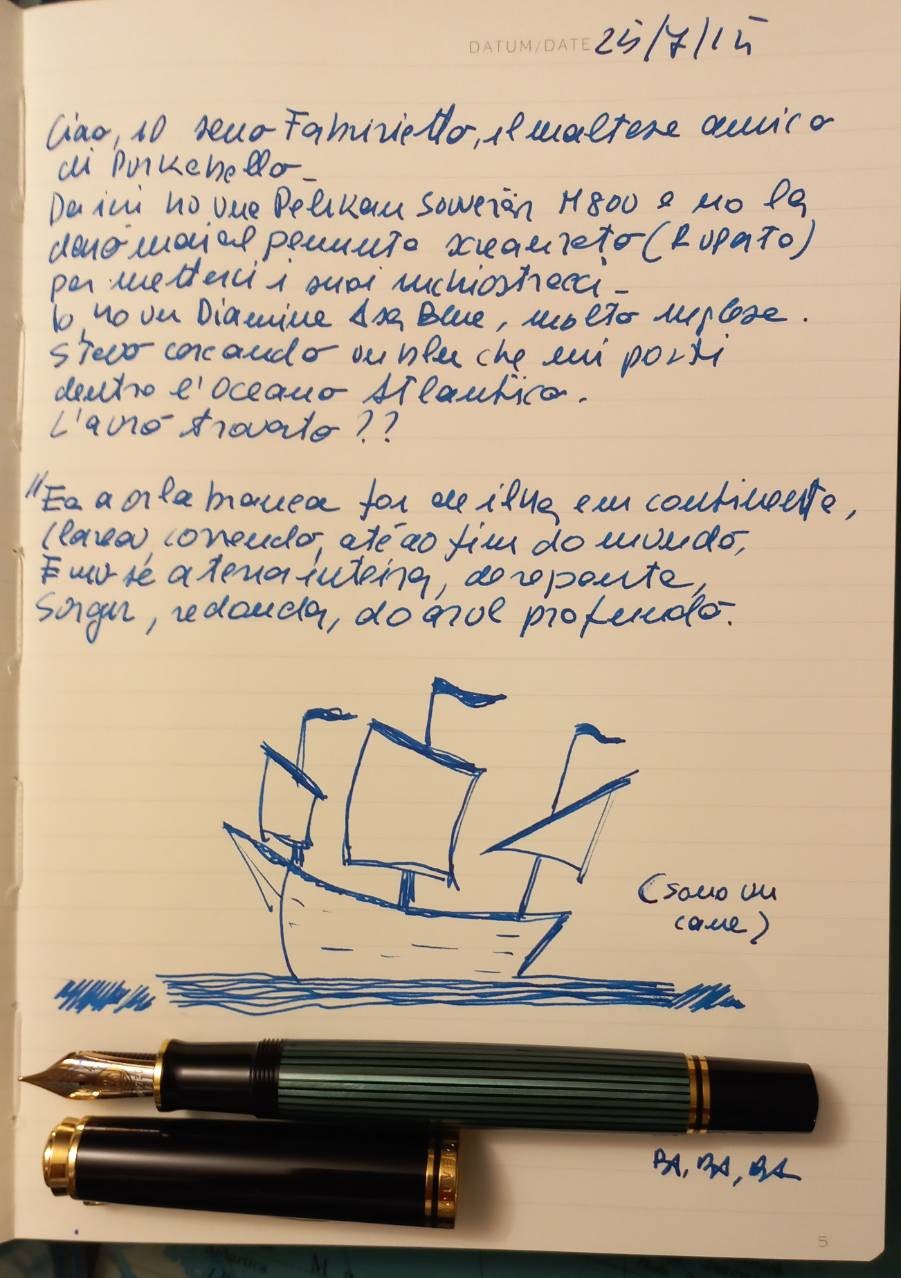 DATUM/DATE 25/7/15
Ciao, io sono Fabrizietto, il maltese amico
di
Da ieri ho una Pelikan Souverän M800 e no la
darò mai al pennuto (Rupato)
per metterci i suoi inchiostracci_
Io, ho un Diamine Asa Blue, molto inglese.
Stavo cercando un blu che mi porti
dentro l'oceano Atlantico.
L'avrò trovato??
"E a orla branca foi de ilha em continente,
Clareou, correndo, até ao fim do mundo,
E viu-se a terra inteira, de repente,
Surgir, redonda, do azul profundo.
(sono un
cane)
BA, BA, BA
5